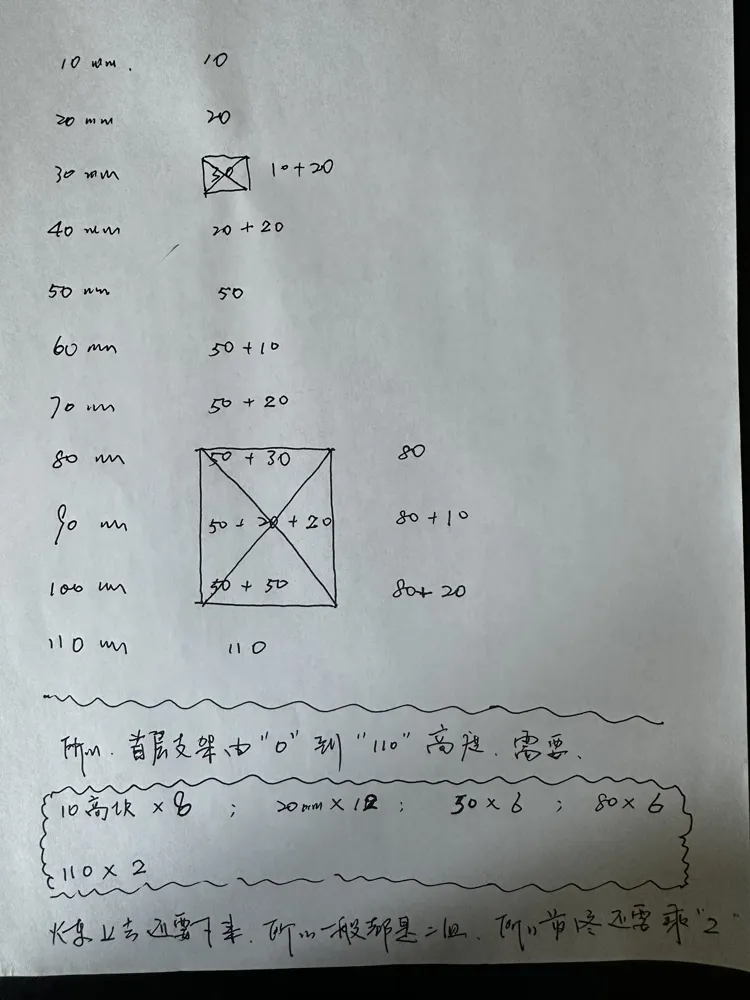 10 mm. 10
20 mm 20
30 mm 30 10+20
40 mm 20 + 20
50 mm 50
60 mm 50 + 10
70 mm 50 + 20
80 mm 50 + 30 80
90 mm 50 + 20 + 20 80 + 10
100 mm 50 + 50 80+ 20
110 mm 110
所以、首层支架由“0”到“110”高度、需要、
10高块 × 8 ; 20mm × 12 ; 50 × 6 ; 80 × 6
110 × 2
火车上去还要下来、所以一般都是二组、所以前终还需乘“2”